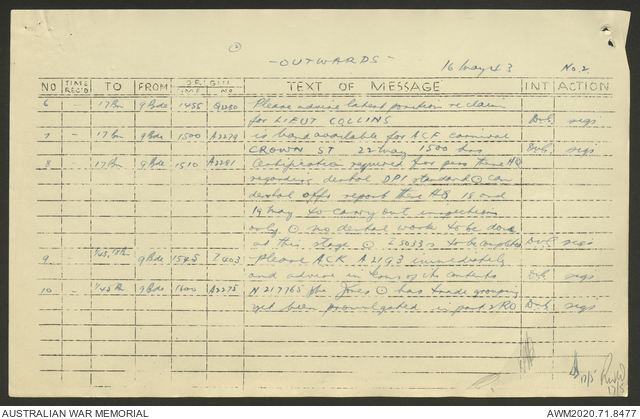 -OUTWARDS-
16 May 43 No. 2
NO TIME REC'D TO FROM ORIGIN TIME NO TEXT OF MESSAGE INT ACTION
6 17 Bn 9 Bde 1455 Please advise latest position re claim
for LIEUT COLLINS sigs
7 17 Bn 9 Bde 1500 A2279 is band available for ACF Carnival
CROWN ST 22 May 1500 hrs sigs
8 17 Bn 9 Bde 1510 A2281 Certification required for this HQ
regarding dental DPI standard (.) Can
dental offr report this HQ 18 and
19 May to carry out inspections
only (.) no dental work to be done
at this stage (.) to be completed sigs
9 9 Bde 1545 Please ACK A2193 immediately
and advise in terms of its contents sigs
10 9 Bde 1600 A2275 Pte Jones (.) has trade grouping
yet been promulgated in part 2 RO sigs
17/5
17/5
AUSTRALIAN WAR MEMORIAL AWM2020.71.8477